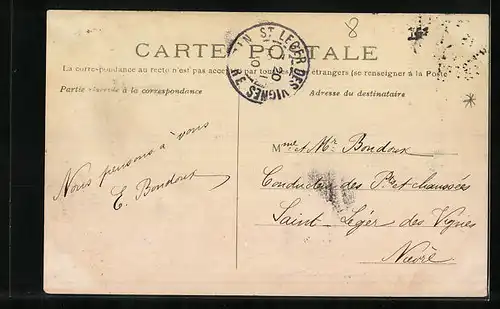 8
CARTE POSTALE
La correspondance au recto n'est pas acceptée par tous les pays étrangers (se renseigner à la Poste
Partie réservée à la correspondance
Adresse du destinataire
ST LEGER DES VIGNES
20
Nous pensons à vous
E. Bondoux
Mme et Mr Bondoux
Conducteur des Pts et chaussées
Saint-Léger des Vignes
Nièvre